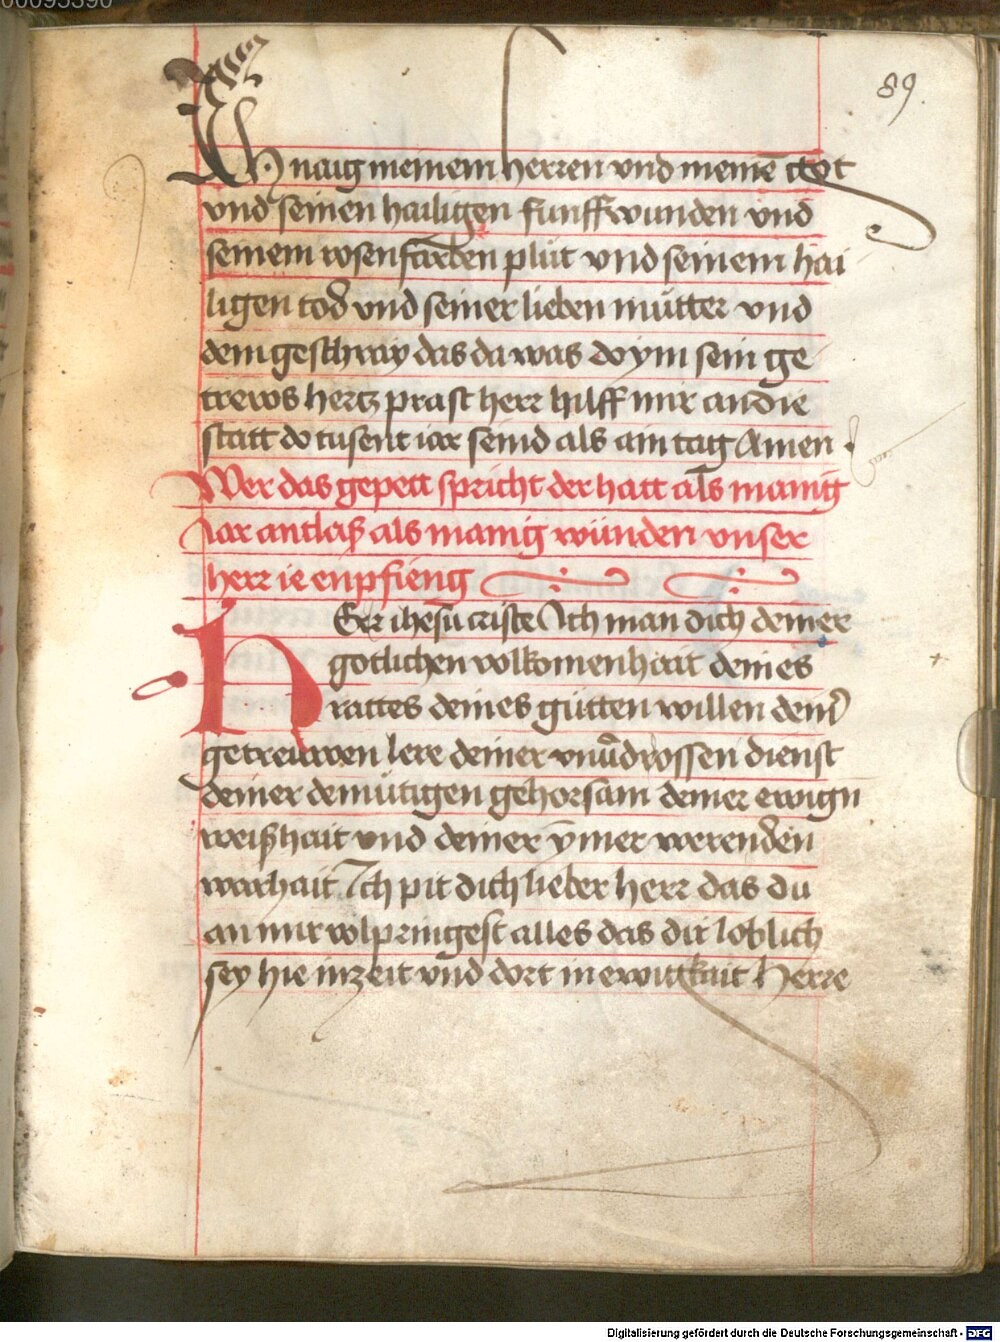 00095390
89.
Ich naig meinem herren und meinē got
vnd seinen hailigen funff wunden vnd
seinem rosenfarben plůt vnd seinem hai
ligen tod vnd seiner lieben můtter vnd
dem geschray das da was do ym sein ge
trews hertz prast herr hilff mir an die
statt do tusent iar seind als ain tag Amen
Wer das gepett spricht der hatt als manig
Iar antlaß als manig wunden vnser
herr ie enpfieng
HErr ihesu criste Ich man dich deiner
gotlichen volkomenhait deines
rattes deines gůtten willen deinꝰ
getreuwen lere deiner vnūdrossen dienst
deiner demůtigen gehorsam deiner ewign
weißhait vnd deiner ymer werenden
warhait Ich pit dich lieber herr das du
an mir volpringest alles das dir loblich
sey hie in zeit vnd dort in ewigkait Herre
Digitalisierung gefördert durch die Deutsche Forschungsgemeinschaft - DFG